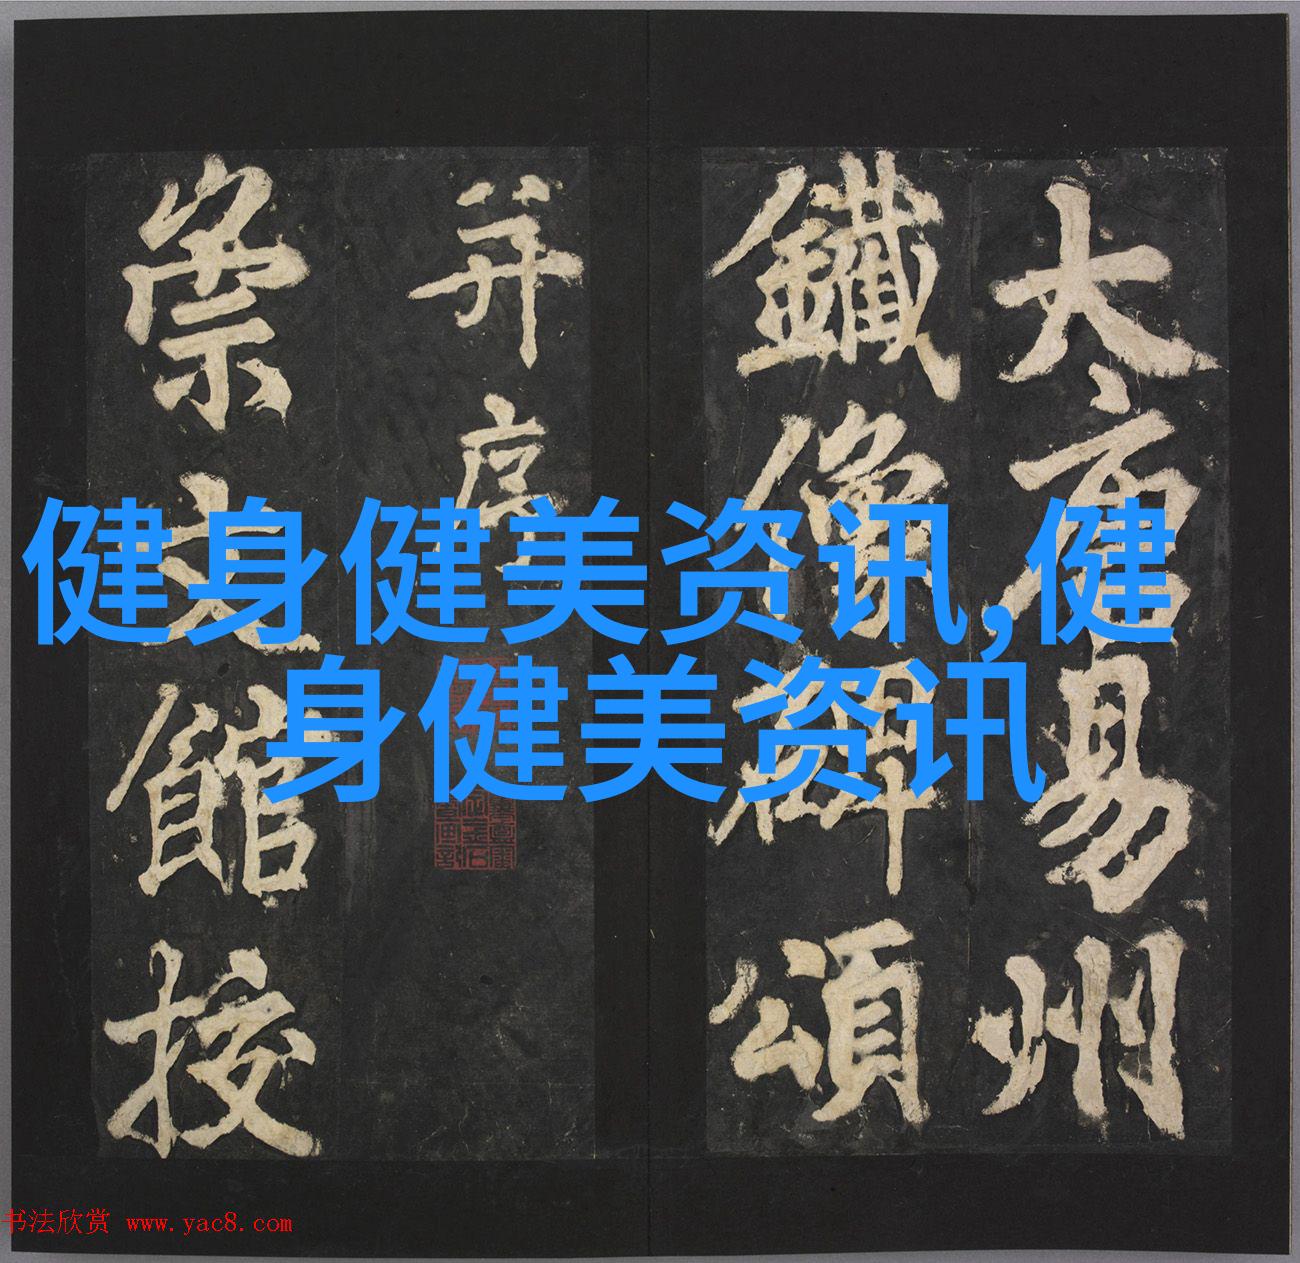 大唐易州
鐵像碑頌
并序
崇文館挍
健身健美资讯,健
身健美资讯
书法欣赏 www.yac8.com